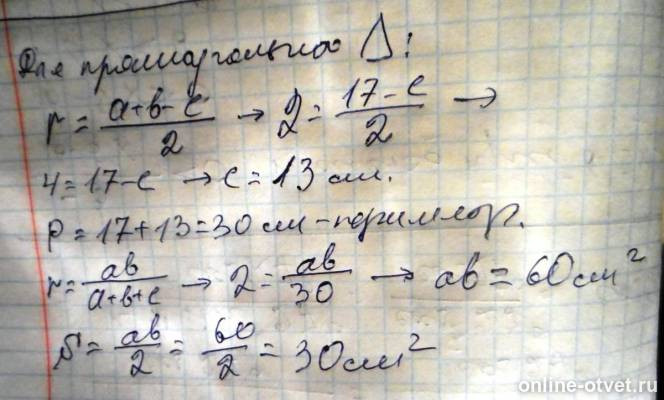 Для прямоугольного Δ:
r = (a+b-c)/2 → 2 = (17-c)/2 →
4 = 17-c → c = 13 см.
P = 17+13 = 30 см - периметр.
r = ab/(a+b+c) → 2 = ab/30 → ab = 60 см²
S = ab/2 = 60/2 = 30 см²
online-otvet.ru